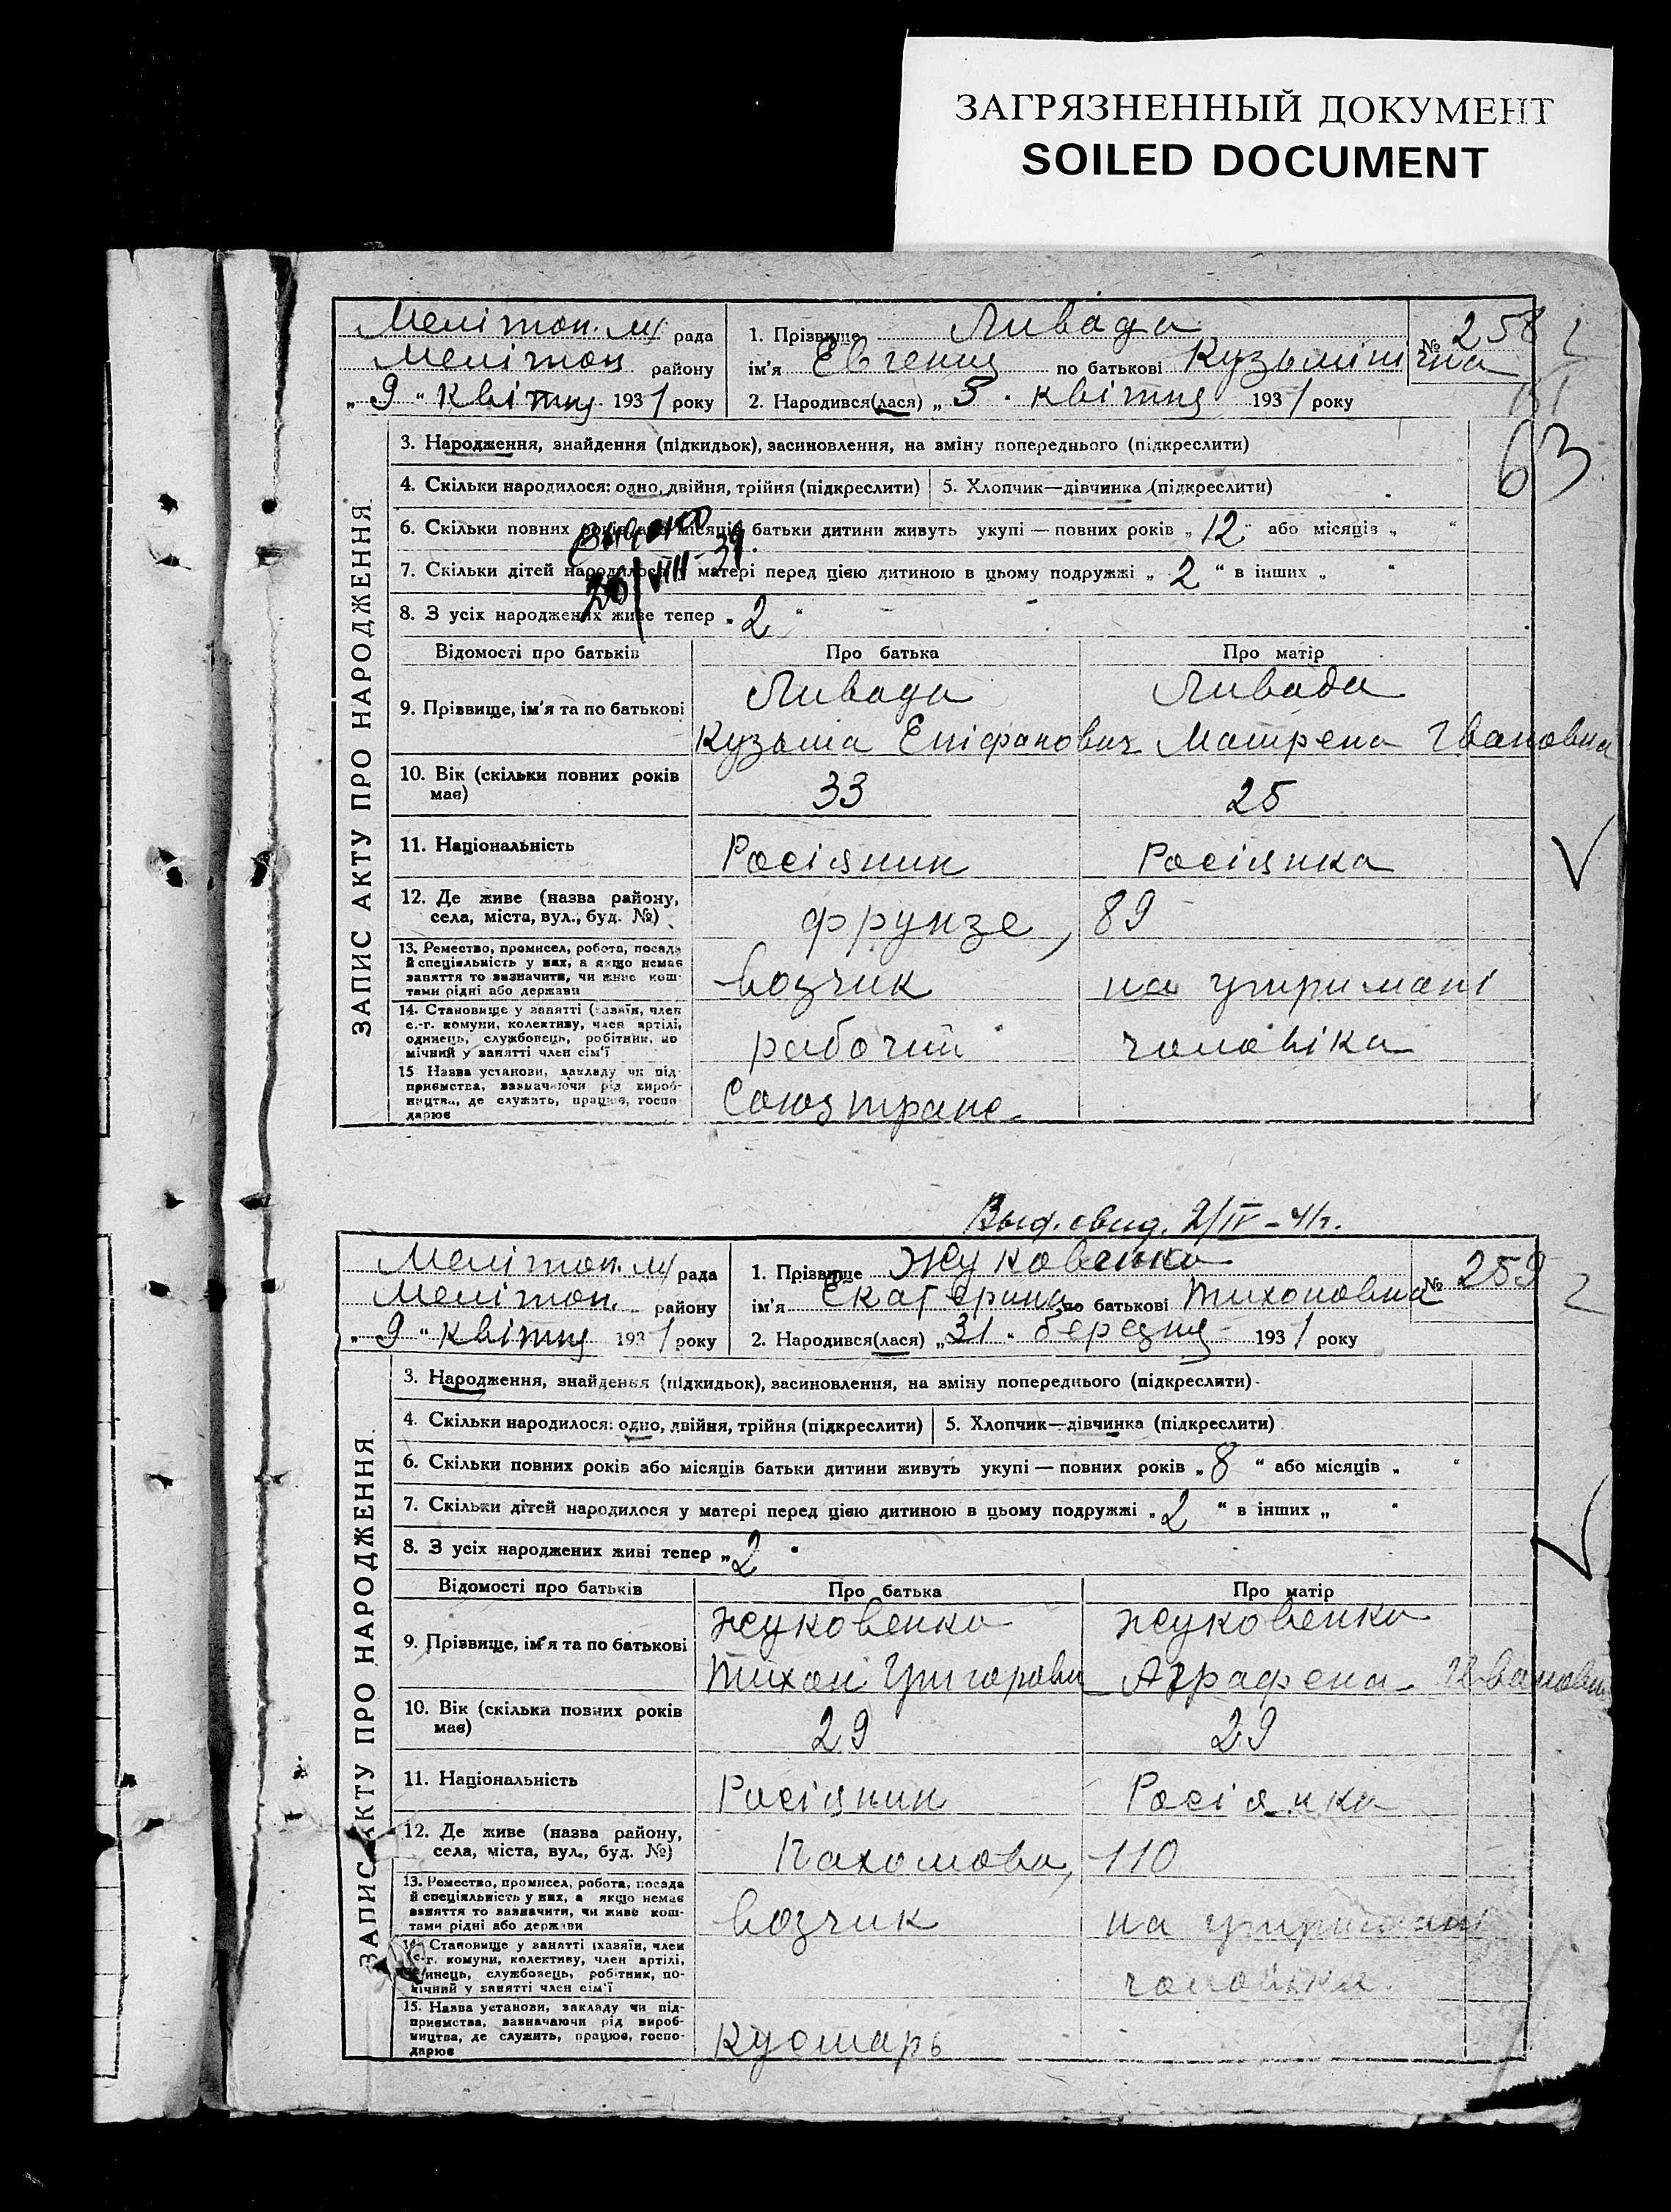 ЗАГРЯЗНЕННЫЙ ДОКУМЕНТ
SOILED DOCUMENT
ЗАПИС АКТУ ПРО НАРОДЖЕННЯ.
Мелітоп. м/ рада
Мелітоп району
„ 9 “ Квітня 1931 року
1. Прізвище Ливада
№ 258
ім'я Евгения по батькові Кузьмінічна
2. Народився(лася) „ 3 “ квітня 1931 року
63
3. Народження, знайдення (підкидьок), засиновлення, на зміну попереднього (підкреслити)
4. Скільки народилося: одно, двійня, трійня (підкреслити) 5. Хлопчик—дівчинка (підкреслити)
6. Скільки повних років або місяців батьки дитини живуть укупі — повних років „ 12 “ або місяців „ “
7. Скільки дітей народилося у матері перед цією дитиною в цьому подружжі „ 2 “ в інших „ “
26/VIII-39.
8. З усіх народжених живе тепер „ 2 “
Відомості про батьків Про батька Про матір
9. Прізвище, ім'я та по батькові Ливада Ливада
Кузьма Епіфанович Матрена Івановна
10. Вік (скільки повних років має) 33 25
11. Національність Росіянин Росіянка
12. Де живе (назва району, села, міста, вул., буд. №) Фрунзе, 89
13. Ремество, промисел, робота, посада й спеціяльність у них, а якщо немає заняття то зазначити, чи живе коштами рідні або держави возчик на утримані
14. Становище у занятті (хазяїн, член с.-г. комуни, колективу, член артілі, одинець, службовець, робітник, помічний у занятті член сім'ї рабочий чоловіка
15 Назва установи, закладу чи підприємства, зазначаючи рід виробництва, де служить, працює, господарює Союзтранс.
Выд. свид. 2/IV-41г.
ЗАПИС АКТУ ПРО НАРОДЖЕННЯ.
Мелітоп. м/ рада
Мелітоп. району
„ 9 “ квітня 1931 року
1. Прізвище Жуковенко
№ 259
ім'я Екатерина по батькові Тихоновна
2. Народився(лася) „ 31 “ березня 1931 року
3. Народження, знайдення (підкидьок), засиновлення, на зміну попереднього (підкреслити)
4. Скільки народилося: одно, двійня, трійня (підкреслити) 5. Хлопчик—дівчинка (підкреслити)
6. Скільки повних років або місяців батьки дитини живуть укупі — повних років „ 8 “ або місяців „ “
7. Скільки дітей народилося у матері перед цією дитиною в цьому подружжі „ 2 “ в інших „ “
8. З усіх народжених живі тепер „ 2 “
Відомості про батьків Про батька Про матір
9. Прізвище, ім'я та по батькові Жуковенко Жуковенко
Тихон Григорови Аграфена Ивановн
10. Вік (скільки повних років має) 29 29
11. Національність Росіянин Росіянка
12. Де живе (назва району, села, міста, вул., буд. №) Пахомова, 110
13. Ремество, промисел, робота, посада й спеціяльність у них, а якщо немає заняття то зазначити, чи живе коштами рідні або держави возчик на утримані
14. Становище у занятті (хазяїн, член с.-г. комуни, колективу, член артілі, одинець, службовець, робітник, помічний у занятті член сім'ї чоловіка
15. Назва установи, закладу чи підприємства, зазначаючи рід виробництва, де служить, працює, господарює Кустарь